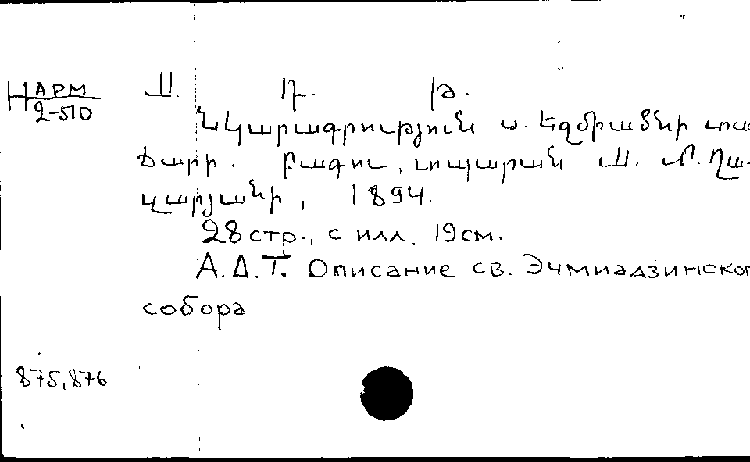 Н АРМ
2-510
Ա. Դ. Թ.
Նկարագրութիւն ս. Էջմիածնի տա
ճարի. Բագու, տպարան Ա. Մ. Ղա-
զարյանի, 1894.
28 стр., с илл. 19см.
А.Д.Т. Описание св. Эчмиадзинског
собора
875,876